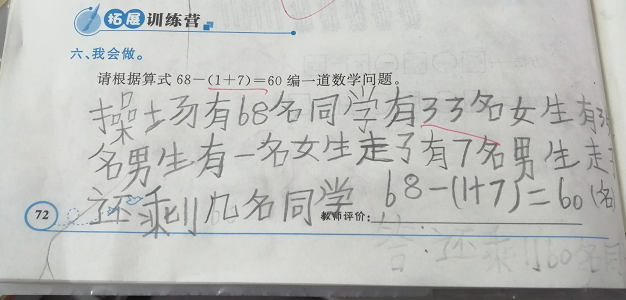 拓展训练营
六、我会做。
请根据算式 68-(1+7)=60 编一道数学问题。
操场有68名同学有33名女生有
名男生有一名女生走了有7名男生走
还剩几名同学 68-(1+7)=60(名
72 教师评价:
答:还剩60名同